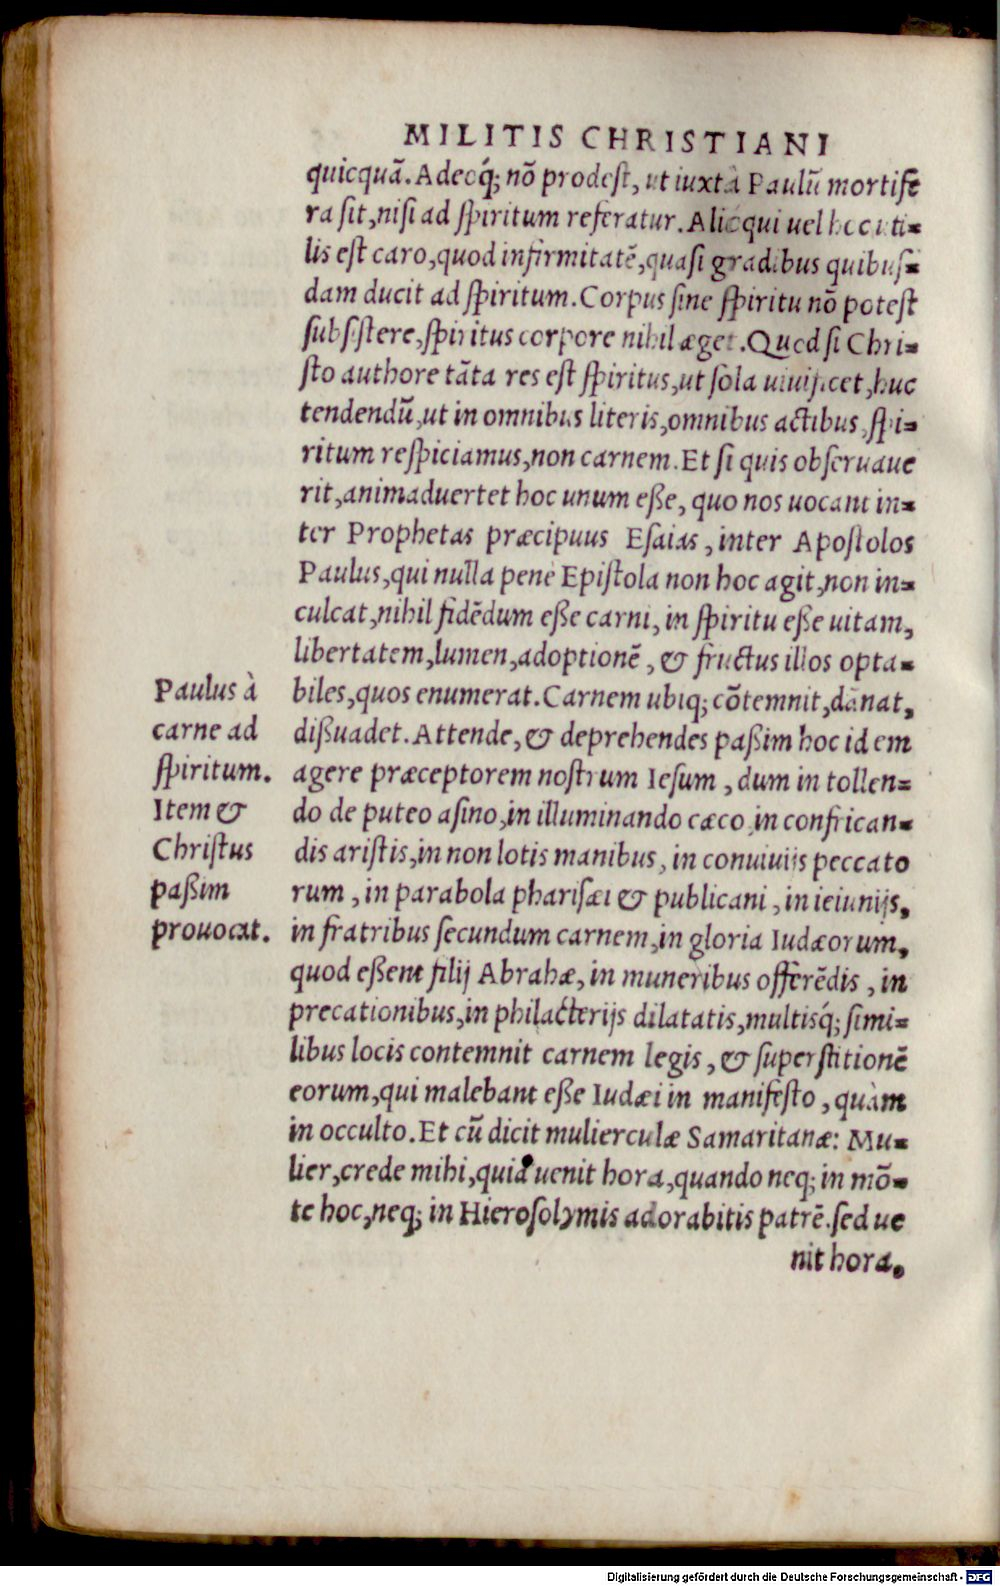 MILITIS CHRISTIANI
quicquā. Adeoq́; nō prodest, ut iuxtà Paulū mortife
ra sit, nisi ad spiritum referatur. Alioqui uel hoc uti-
lis est caro, quod infirmitatē, quasi gradibus quibus-
dam ducit ad spiritum. Corpus sine spiritu nō potest
subsistere, spiritus corpore nihil æget. Quod si Chri-
sto authore tāta res est spiritus, ut sola uiuificet, huc
tendendū, ut in omnibus literis, omnibus actibus, spi-
ritum respiciamus, non carnem. Et si quis obseruaue
rit, animaduertet hoc unum eße, quo nos uocant in-
ter Prophetas præcipuus Esaias, inter Apostolos
Paulus, qui nulla penè Epistola non hoc agit, non in-
culcat, nihil fidēdum eße carni, in spiritu eße uitam,
libertatem, lumen, adoptionē, & fructus illos opta-
biles, quos enumerat. Carnem ubiq; cōtemnit, dānat,
dißuadet. Attende, & deprehendes paßim hoc idem
agere præceptorem nostrum Iesum, dum in tollen-
do de puteo asino, in illuminando cæco, in confrican-
dis aristis, in non lotis manibus, in conuiuijs peccato
rum, in parabola pharisæi & publicani, in ieiunijs,
in fratribus secundum carnem, in gloria Iudæorum,
quod eßent filij Abrahæ, in muneribus offerēdis, in
precationibus, in philacterijs dilatatis, multisq́; simi-
libus locis contemnit carnem legis, & superstitionē
eorum, qui malebant eße Iudæi in manifesto, quàm
in occulto. Et cū dicit mulierculæ Samaritanæ: Mu-
lier, crede mihi, quia uenit hora, quando neq; in mō-
te hoc, neq; in Hierosolymis adorabitis patrē. sed ue
nit hora,
Paulus à
carne ad
spiritum.
Item &
Christus
paßim
prouocat.
Digitalisierung gefördert durch die Deutsche Forschungsgemeinschaft - DFG